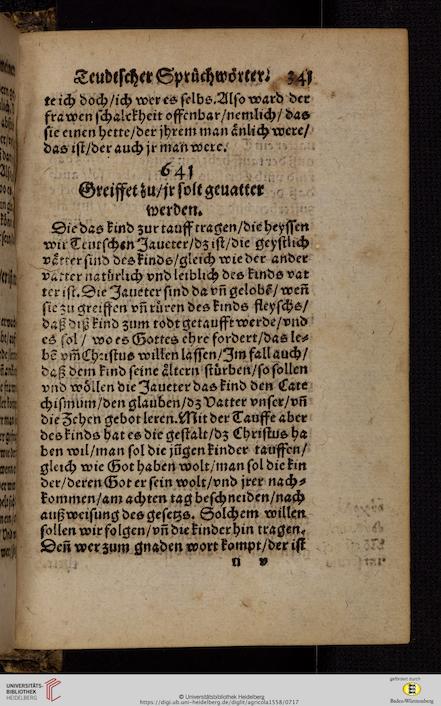 Teutscher Sprüchwörter. 341
te ich doch/ich wer es selbs. Also ward der
frawen schalckheit offenbar/nemlich/das
sie einen hette/der jhrem man änlich were/
das ist/der auch jr man were.
641
Greiffet zu/jr solt gevatter
werden.
Die das kind zur tauff tragen/die heyssen
wir Teutschen Javeter/dz ist/die geystlich
vätter sind des kinds/gleich wie der ander
vatter natürlich vnd leiblich des kinds vat
ter ist. Die Javeter sind da vñ gelobē/weñ
sie zu greiffen vñ rüren des kinds fleyschs/
daß diß kind zum todt getaufft werde/vnd
es sol/wo es Gottes ehre fordert/das le-
bē vm̃ Christus willen lassen/Im fall auch/
daß dem kind seine ältern stürben/so sollen
vnd wöllen die Javeter das kind den Cate
chismum/den glauben/dz Vatter vnser/vñ
die Zehen gebot leren. Mit der Tauffe aber
des kinds hat es die gestalt/dz Christus ha
ben wil/man sol die jūgen kinder tauffen/
gleich wie Got haben wolt/man sol die kin
der/deren Got er sein wolt/vnd jrer nach-
kommen/am achten tag beschneiden/nach
außweisung des gesetzs. Solchem willen
sollen wir folgen/vñ die kinder hin tragen.
Deñ wer zum gnaden wort kompt/der ist
v
UNIVERSITÄTS-
BIBLIOTHEK
HEIDELBERG
© Universitätsbibliothek Heidelberg
https://digi.ub.uni-heidelberg.de/diglit/agricola1558/0717
gefördert durch
Baden-Württemberg